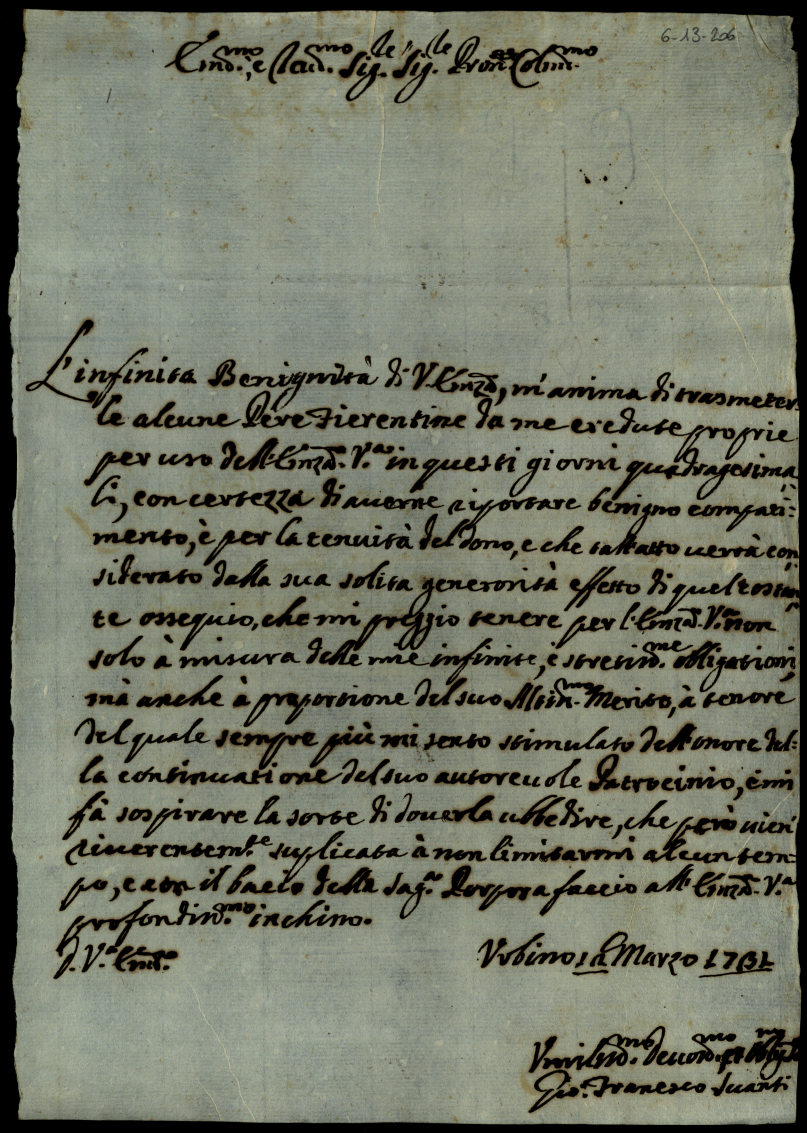 6-13-206
Em.mo, e Reud.mo Sig.le Sig.le Pron.e Colend.mo
L'infinita Benignità di V. Emza, m'anima di trasmeter-
le alcune Pere Fierentine da me credute proprie
per uso dell'Emza V.a in questi giorni quadragesima
li, con certezza di auerne riportare benigno compati=
mento, è per la tenuità del dono, e che tal'atto uerrà con
siderato dalla sua solita generosità effetto di quel costan
te ossequio, che mi preggio tenere per l'Emza V.a non
solo à misura delle mie infinite, è stretiss.me obligationi,
mà anche à proportione del suo Altiss.mo Merito, à tenore
del quale sempre più mi sento stimulato dell'onore del=
la continuatione del suo autoreuole Patrocinio, è mi
fà sospirare la sorte di douerla ubbedire, che però uien
riuerentem.te suplicata à non limitarmi alcun tem=
po, e con il bacio della Sag.a Porpora faccio all'Emza V.a
profondiss.mo inchino.
D. V.a Emza
Urbino Marzo 1731
Umiliss.mo Deuotiss.mo
Gio. Francesco